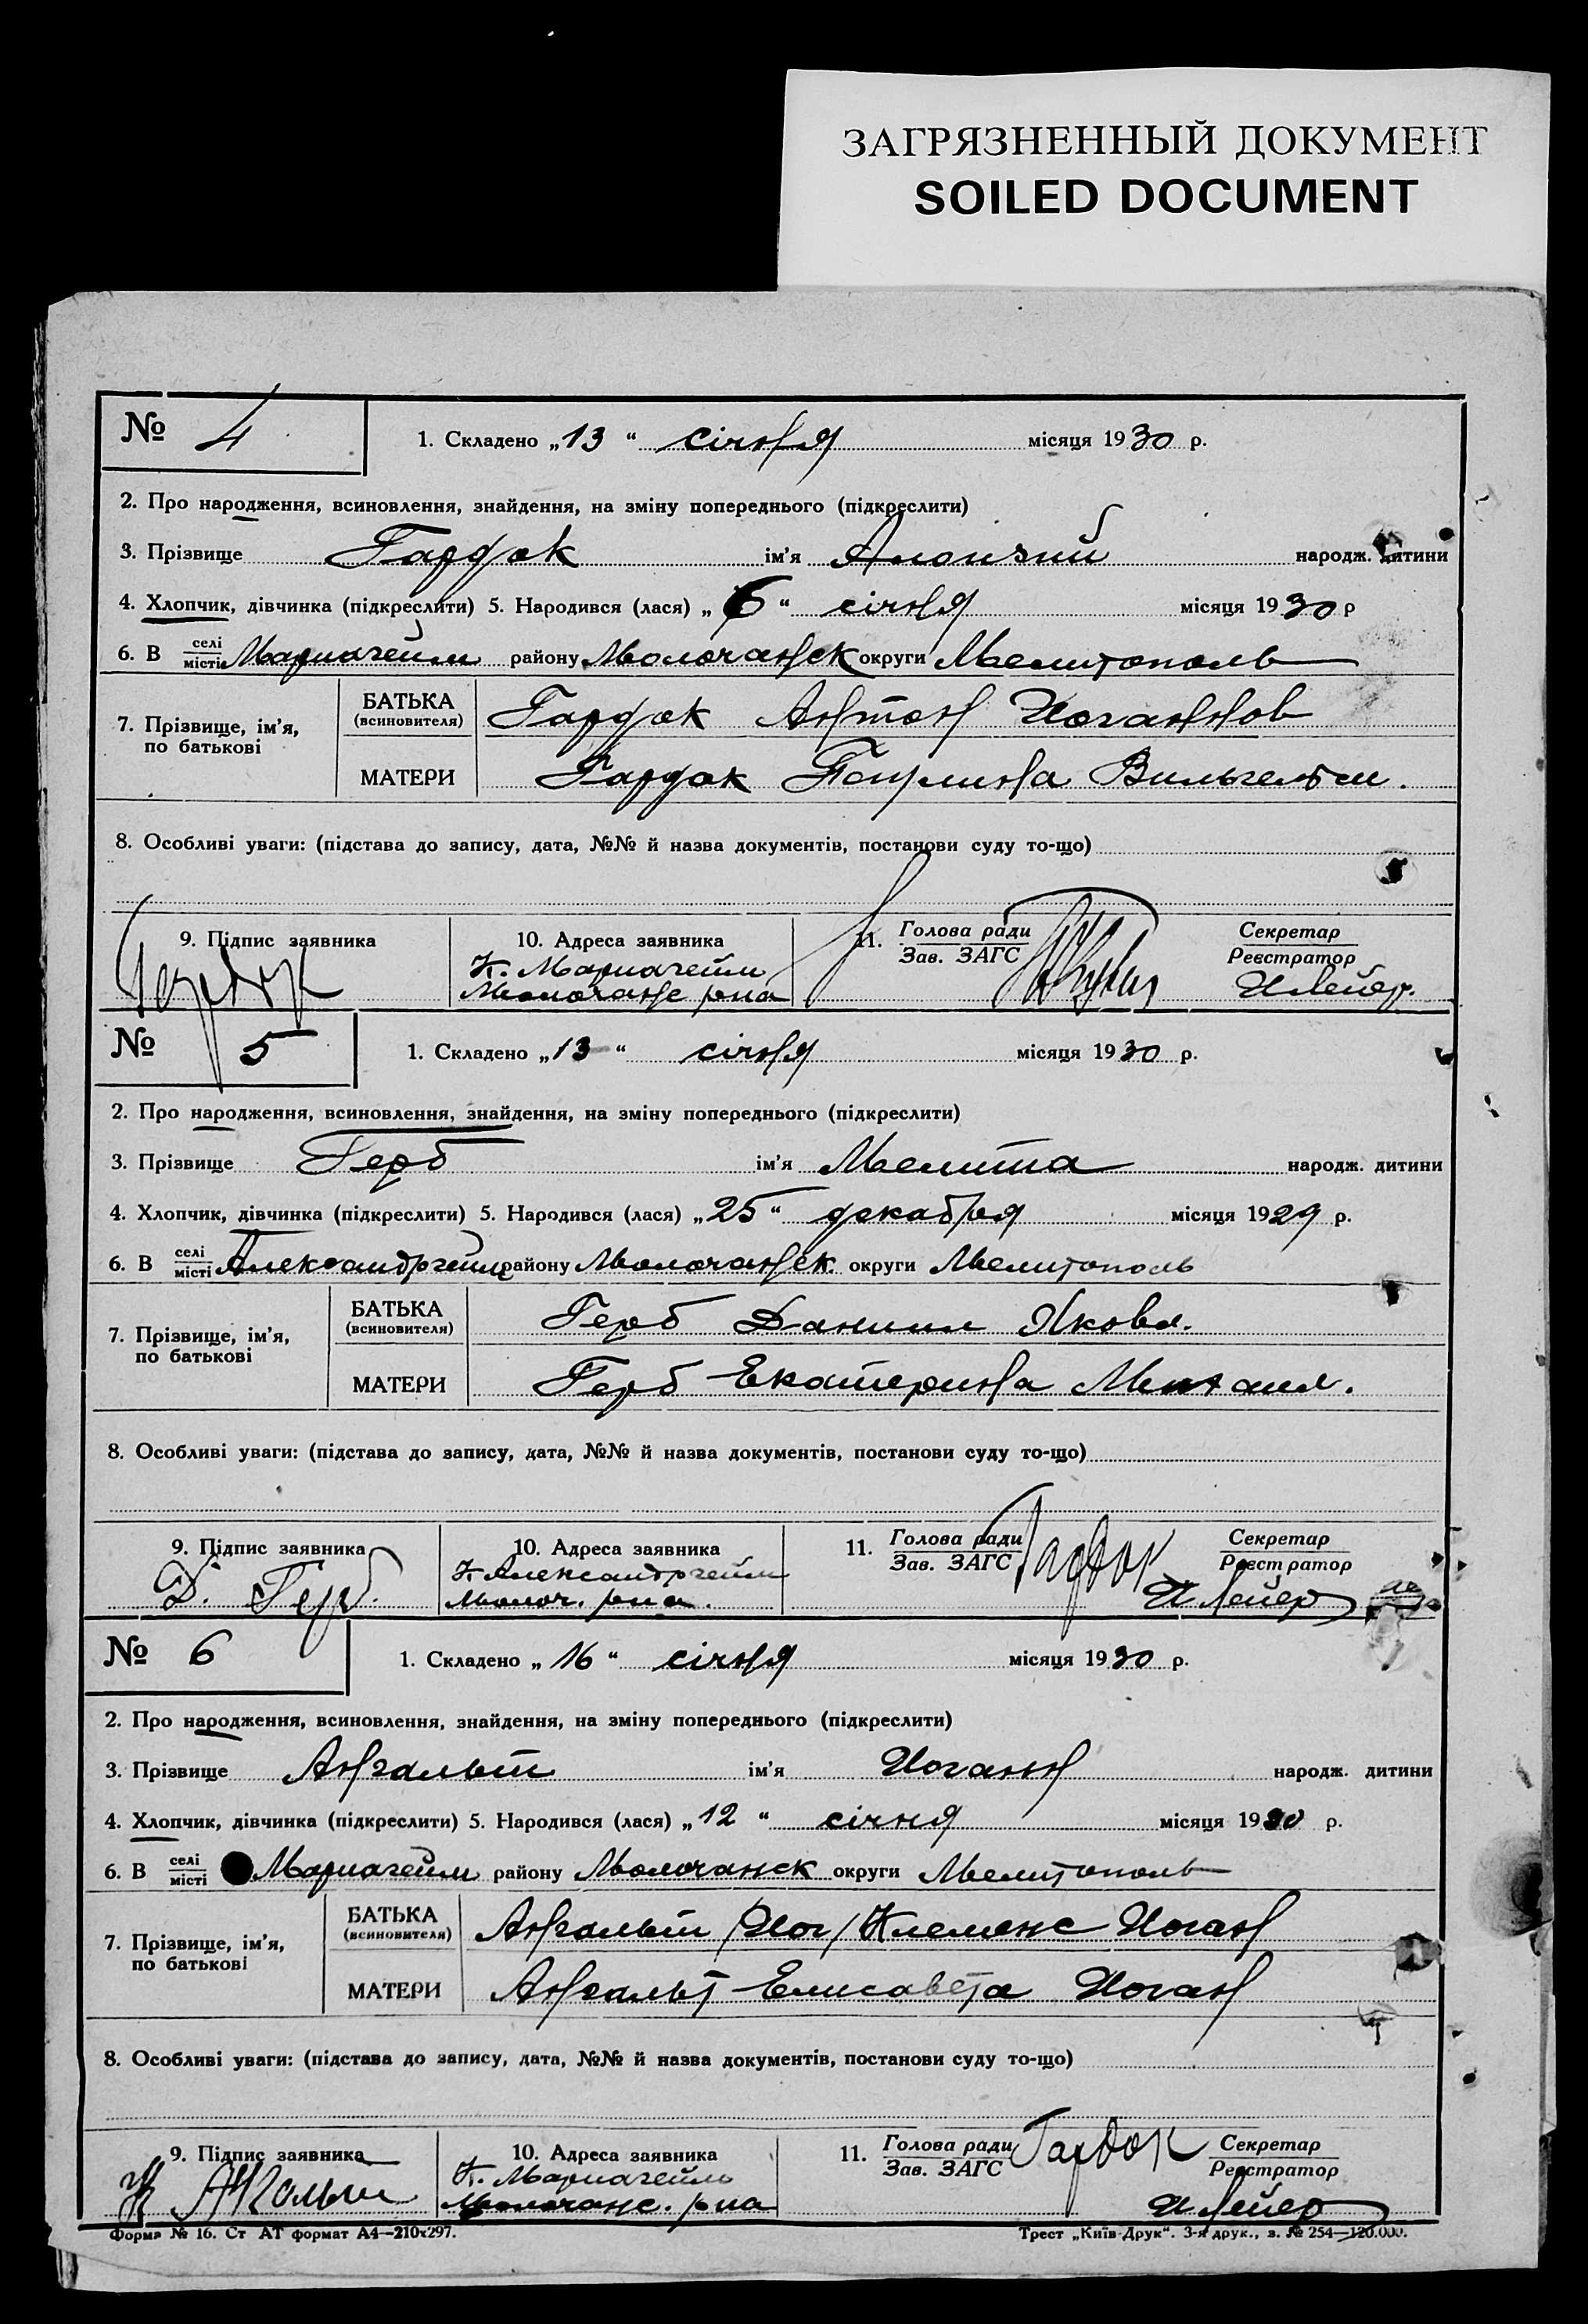 ЗАГРЯЗНЕННЫЙ ДОКУМЕНТ
SOILED DOCUMENT
№ 4
1. Складено „13“ січня місяця 1930 р.
2. Про народження, всиновлення, знайдення, на зміну попереднього (підкреслити)
3. Прізвище Гардок ім'я Алоизий народж. дитини
4. Хлопчик, дівчинка (підкреслити) 5. Народився (лася) „6“ січня місяця 1930 р
6. В селі місті Мариагейм району Молочанск округи Мелитополь
7. Прізвище, ім'я, по батькові
БАТЬКА (всиновителя) Гардок Антон Иоганнов
МАТЕРИ Гардок Паулина Вильгельм.
8. Особливі уваги: (підстава до запису, дата, №№ й назва документів, постанови суду то-що)
9. Підпис заявника
10. Адреса заявника
К. Мариагейм
Молочанс р-на
11. Голова ради Зав. ЗАГС
Секретар Реєстратор
И Лейер.
№ 5
1. Складено „13“ січня місяця 1930 р.
2. Про народження, всиновлення, знайдення, на зміну попереднього (підкреслити)
3. Прізвище Герб ім'я Мелита народж. дитини
4. Хлопчик, дівчинка (підкреслити) 5. Народився (лася) „25“ декабря місяця 1929 р.
6. В селі місті Александргейм району Молочанск. округи Мелитополь
7. Прізвище, ім'я, по батькові
БАТЬКА (всиновителя) Герб Даниил Яковл.
МАТЕРИ Герб Екатерина Михаил.
8. Особливі уваги: (підстава до запису, дата, №№ й назва документів, постанови суду то-що)
9. Підпис заявника
Д. Герб.
10. Адреса заявника
К. Александргейм
Молоч. р-на.
11. Голова ради Зав. ЗАГС Гардок
Секретар Реєстратор
И Лейер
№ 6
1. Складено „16“ січня місяця 1930 р.
2. Про народження, всиновлення, знайдення, на зміну попереднього (підкреслити)
3. Прізвище Ангальт ім'я Иоганн народж. дитини
4. Хлопчик, дівчинка (підкреслити) 5. Народився (лася) „12“ січня місяця 1930 р.
6. В селі місті Мариагейм району Молочанск округи Мелитополь
7. Прізвище, ім'я, по батькові
БАТЬКА (всиновителя) Ангальт /Иог/ Клеменс Иоган
МАТЕРИ Ангальт Елисавета Иоган
8. Особливі уваги: (підстава до запису, дата, №№ й назва документів, постанови суду то-що)
9. Підпис заявника
10. Адреса заявника
К. Мариагейм
Молочанс. р-на
11. Голова ради Зав. ЗАГС Гардок
Секретар Реєстратор
И Лейер
Форма № 16. Ст АТ формат А4—210х297.
Трест „Київ-Друк“. 3-я друк., з. № 254—120.000.